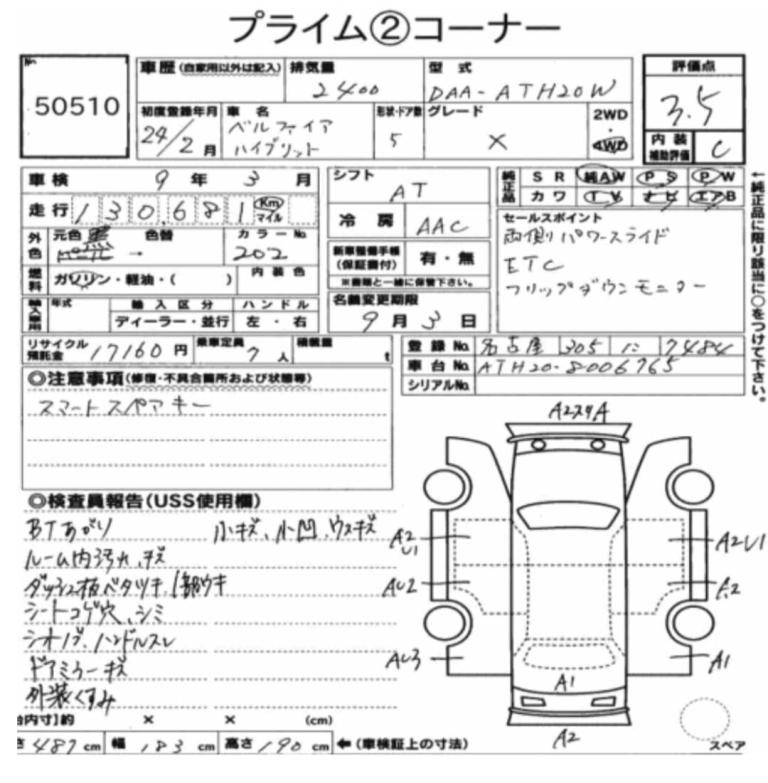 プライム②コーナー
No.
50510
車歴(自家用以外は記入)
排気量
2400
型式
DAA-ATH20W
評価点
3.5
初度登録年月
24/2月
車名
ベルファイア
ハイブリット
形状・ドア数
5
グレード
X
2WD
・
4WD
内装
補助評価
C
車検 9年3月
シフト
AT
純正品
SR 純AW PS PW
カワ TV ナビ エアB
走行 130,681 Km マイル
冷房 AAC
セールスポイント
両側パワースライド
ETC
フリップダウンモニター
外色
元色 黒
色替
カラーNo.
202
新車整備手帳
(保証書付)
有・無
※書類と一緒に保管下さい。
燃料
ガソリン・軽油・( )
内装色
輸入車用
年式
輸入区分
ディーラー・並行
ハンドル
左・右
名義変更期限
9月3日
←純正品に限り該当に○をつけて下さい。
リサイクル
預託金
17160円
乗車定員
7人
積載量
t
登録No. 名古屋 305 に 7484
車台No. ATH20-8006765
シリアルNo.
◎注意事項(修復・不具合箇所および状態等)
スマートスペアキー
◎検査員報告(USS使用欄)
BTあがり 小キズ、小凹、ウスキズ
ルーム内汚れ、キズ
ダッシュ板ベタツキ、1部ウキ
シートコゲ穴、シミ
シオノブ、ハンドルスレ
ドアミラーキズ
外装くすみ
A2スタA
A2
U1
A2U1
AU2
A2
AU3
A1
A1
A2
スペア
台内寸〕約 × × (cm)
さ487cm 幅183cm 高さ190cm ←(車検証上の寸法)